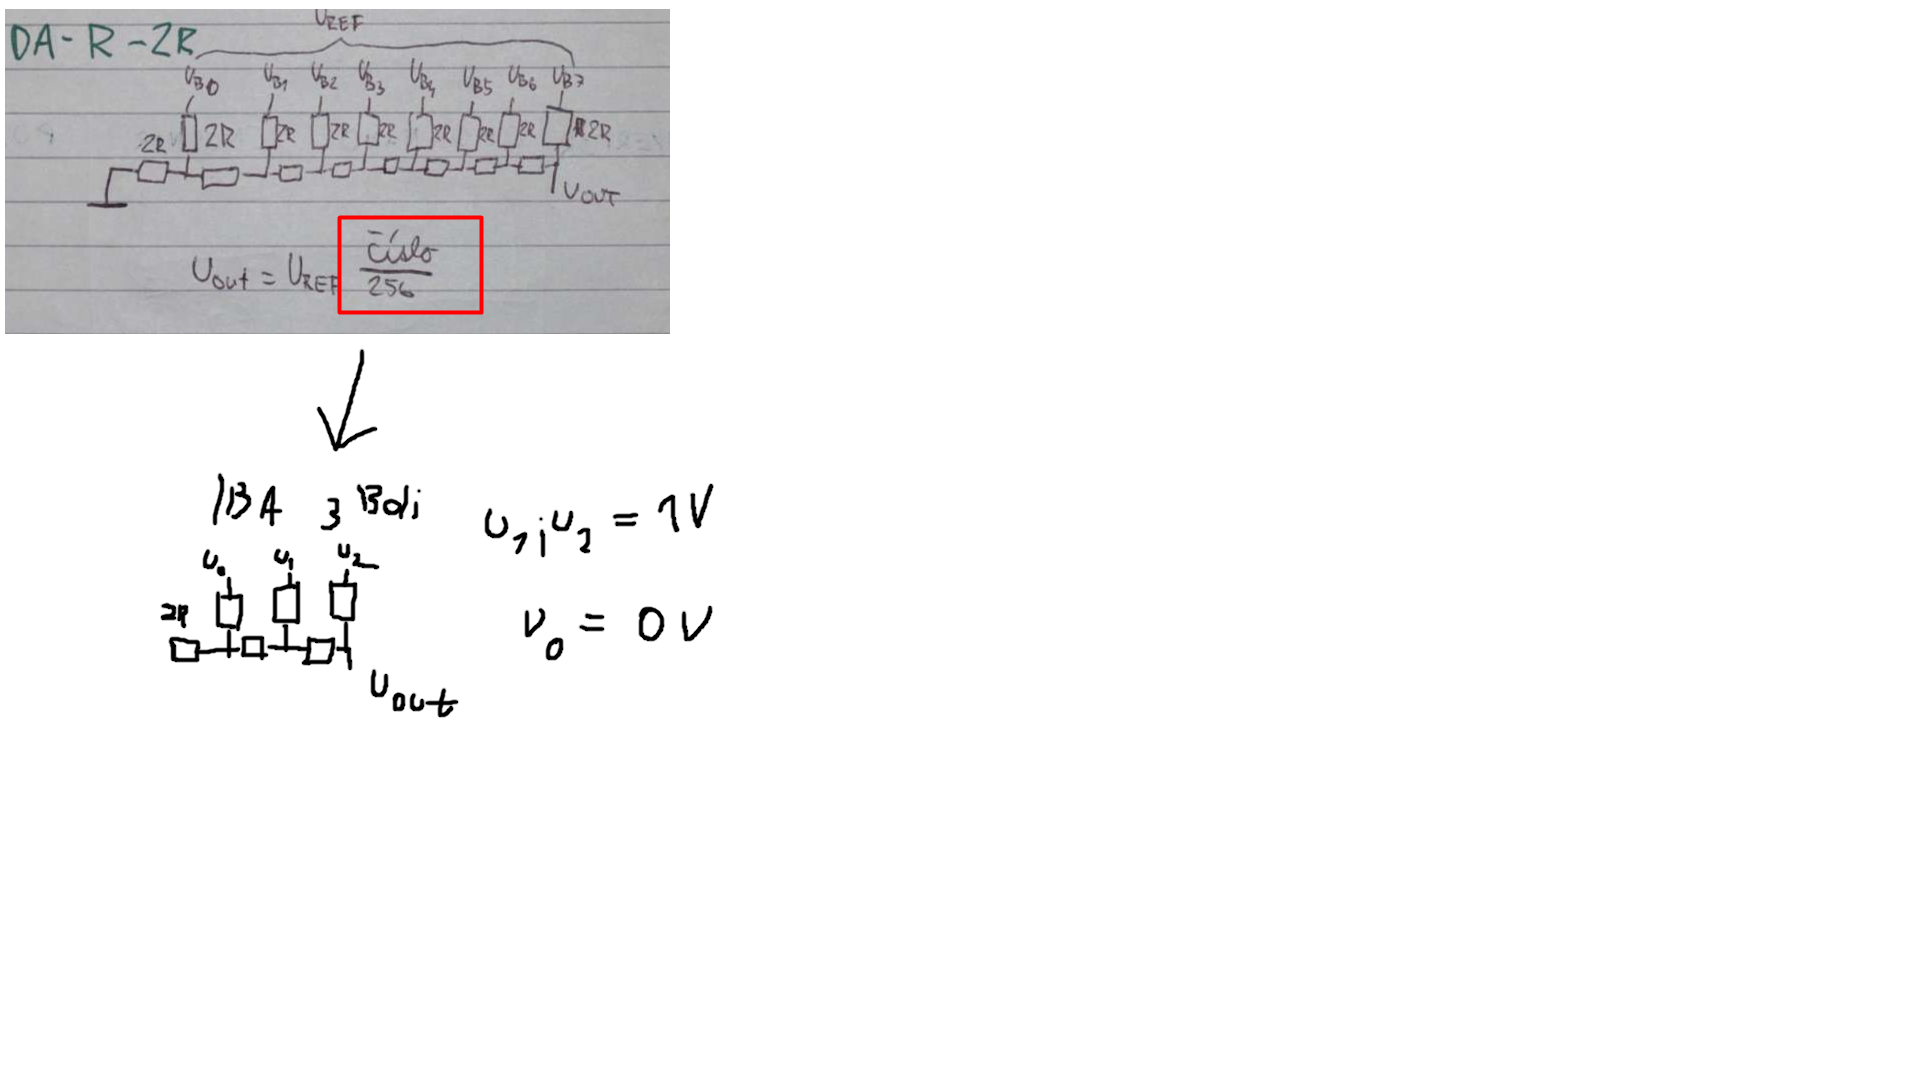 DA-R-2R
UREF
UB0 UB1 UB2 UB3 UB4 UB5 UB6 UB7
2R 2R 2R 2R 2R 2R 2R 2R 2R
UOUT
Uout = UREF číslo
256
3
U1 i U2 = 1V
U0 U1 U2
2R
U0 = 0V
Uout